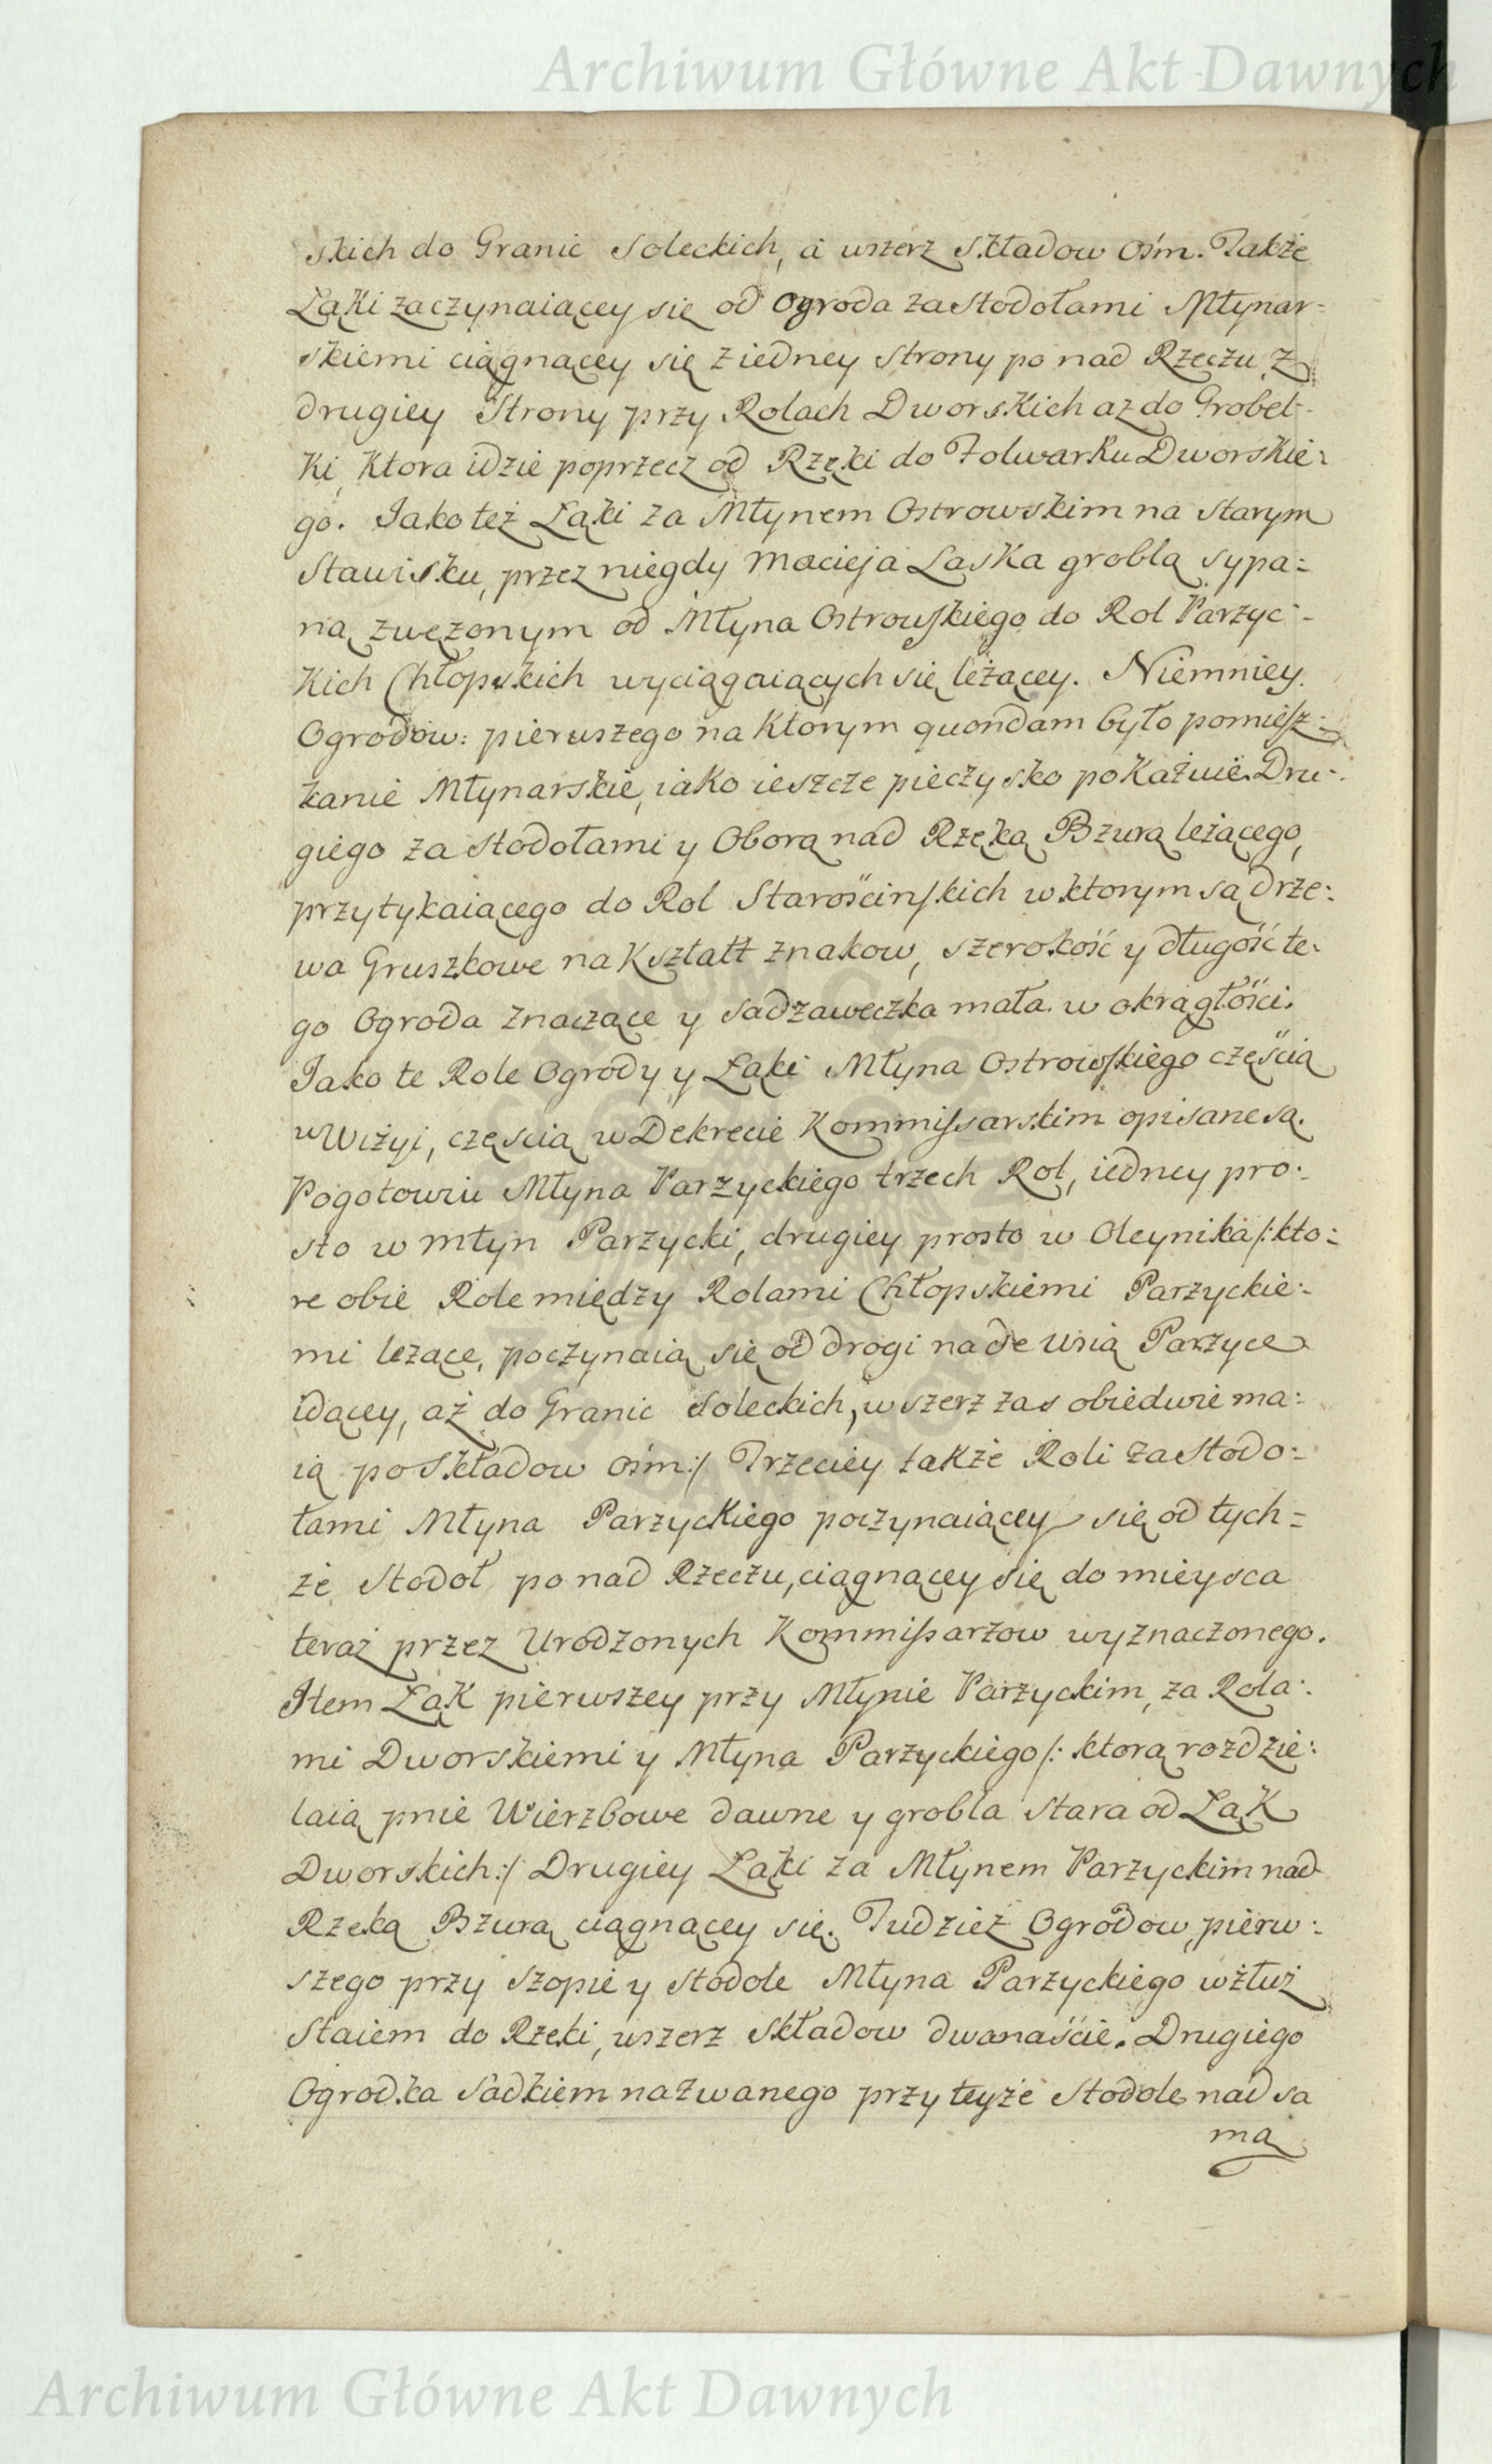 Archiwum Główne Akt Dawnych
skich do Granic Soleckich, a wszerz składow ośm. Także
Łąki zaczynaiącey się od ogroda za Stodołami Młynar-
skiemi ciągnącey się z iedney Strony po nad Rzeczu, z
drugiey Strony przy Rolach Dworskich aż do Grobel-
ki, ktora idzie poprzecz od Rzęki do Folwarku Dworskie-
go. Jako też Łąki za Młynem Ostrowskim na starym
Stawisku, przez niegdy Macieja Laska groblą sypa=
ną zwężonym od Młyna Ostrowskiego do Rol Parzyc-
kich Chłopskich wyciągaiących się leżącey. Niemniey
Ogrodow: pierwszego na ktorym quondam było pomiesz-
kanie Młynarskie, iako ieszcze pieczysko pokazuie. Dru-
giego za stodołami y Oborą nad Rzeką Bzurą leżącego,
przytykaiącego do Rol Starościnskich w ktorym są drze-
wa Gruszkowe na Kształt znakow, szerokość y długość te-
go Ogroda znaczące y Sadzaweczka mała w okrągłości.
Jako te Role Ogrody y Łąki Młyna Ostrowskiego częścią
w Wizyi, częscią w Dekrecie Kommissarskim opisane są.
Pogotowiu Młyna Parzyckiego trzech Rol, iedney pro-
sto w młyn Parzycki, drugiey prosto w Oleynika /: kto=
re obie Role między Rolami Chłopskiemi Parzyckie-
mi leżące, poczynaią się od drogi nade wsią Parzyce
idącey, aż do Granic Soleckich, w szerz zas obiedwie ma-
ią po Składow ośm :/ Trzeciey także Roli za Stodo-
łami Młyna Parzyckiego poczynaiącey się od tych=
że Stodoł po nad Rzeczu, ciągnącey się do mieysca
teraz przez Urodzonych Kommissarzow wyznaczonego.
Item Łąk pierwszey przy Młynie Parzyckim, za Rola-
mi Dworskiemi y Młyna Parzyckiego /: ktorą rozdzie-
laią pnie Wierzbowe dawne y grobla stara od Łąk
Dworskich :/ Drugiey Łąki za Młynem Parzyckim nad
Rzeką Bzurą ciągnącey się. Tudzież Ogrodow, pierw-
szego przy Szopie y stodole Młyna Parzyckiego wżłuż
Staiem do Rzeki, wszerz Składow dwanaście. Drugiego
Ogrodka Sadkiem nazwanego przy teyże Stodole nad sa
mą
Archiwum Główne Akt Dawnych